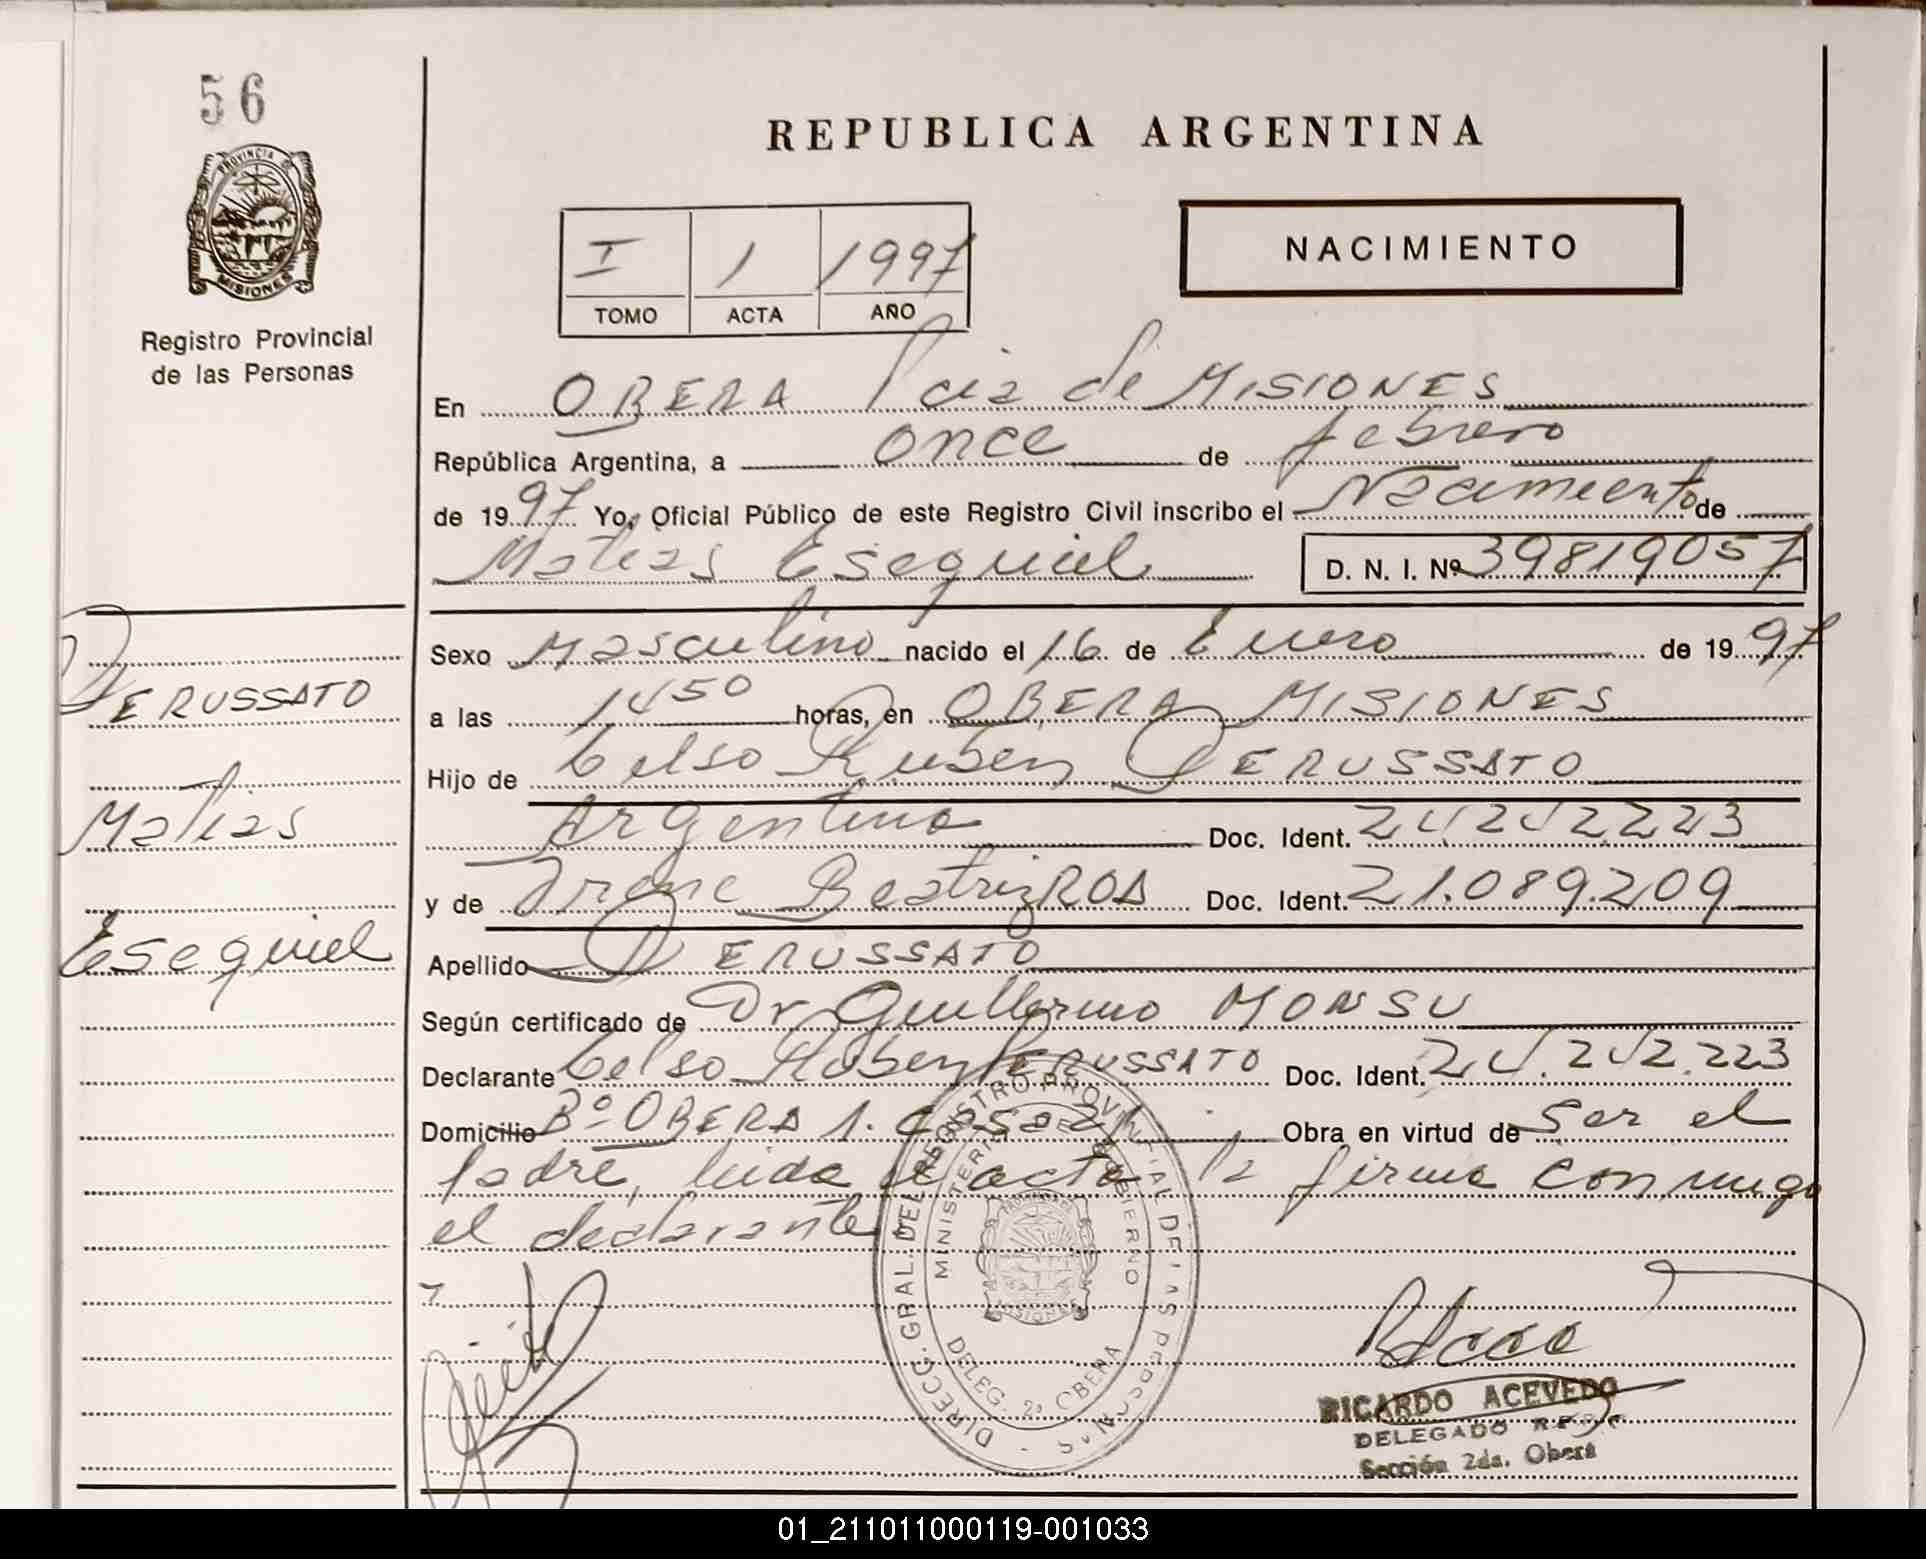 56
PROVINCIA DE
MISIONES
Registro Provincial
de las Personas
REPUBLICA ARGENTINA
I 1 1997
TOMO ACTA AÑO
NACIMIENTO
En OBERA Pcia de MISIONES
República Argentina, a once de febrero
de 1997 Yo, Oficial Público de este Registro Civil inscribo el Nacimiento de
Matias Esequiel D. N. I. Nº 39819057
Sexo Masculino nacido el 16 de Enero de 1997
a las 1450 horas, en OBERA MISIONES
Hijo de Celso Ruben DERUSSATO
Argentino Doc. Ident.
y de Irene Beatriz ROA Doc. Ident. 21.089.209
Apellido DERUSSATO
Según certificado de Dr Guillermo MONSU
Declarante Celso Ruben DERUSSATO Doc. Ident.
Domicilio Bº OBERA 1. casa Obra en virtud de ser el
padre, leida el acta la firma conmigo
el declarante
DERUSSATO
Matias
Esequiel
DIRECC. GRAL. DEL REGISTRO PROVINCIAL DE LAS PERSONAS
MINISTERIO DE GOBIERNO
MISIONES
DELEG. 2a OBERA
RICARDO ACEVEDO
DELEGADO
Sección 2da. Oberá
01_211011000119-001033